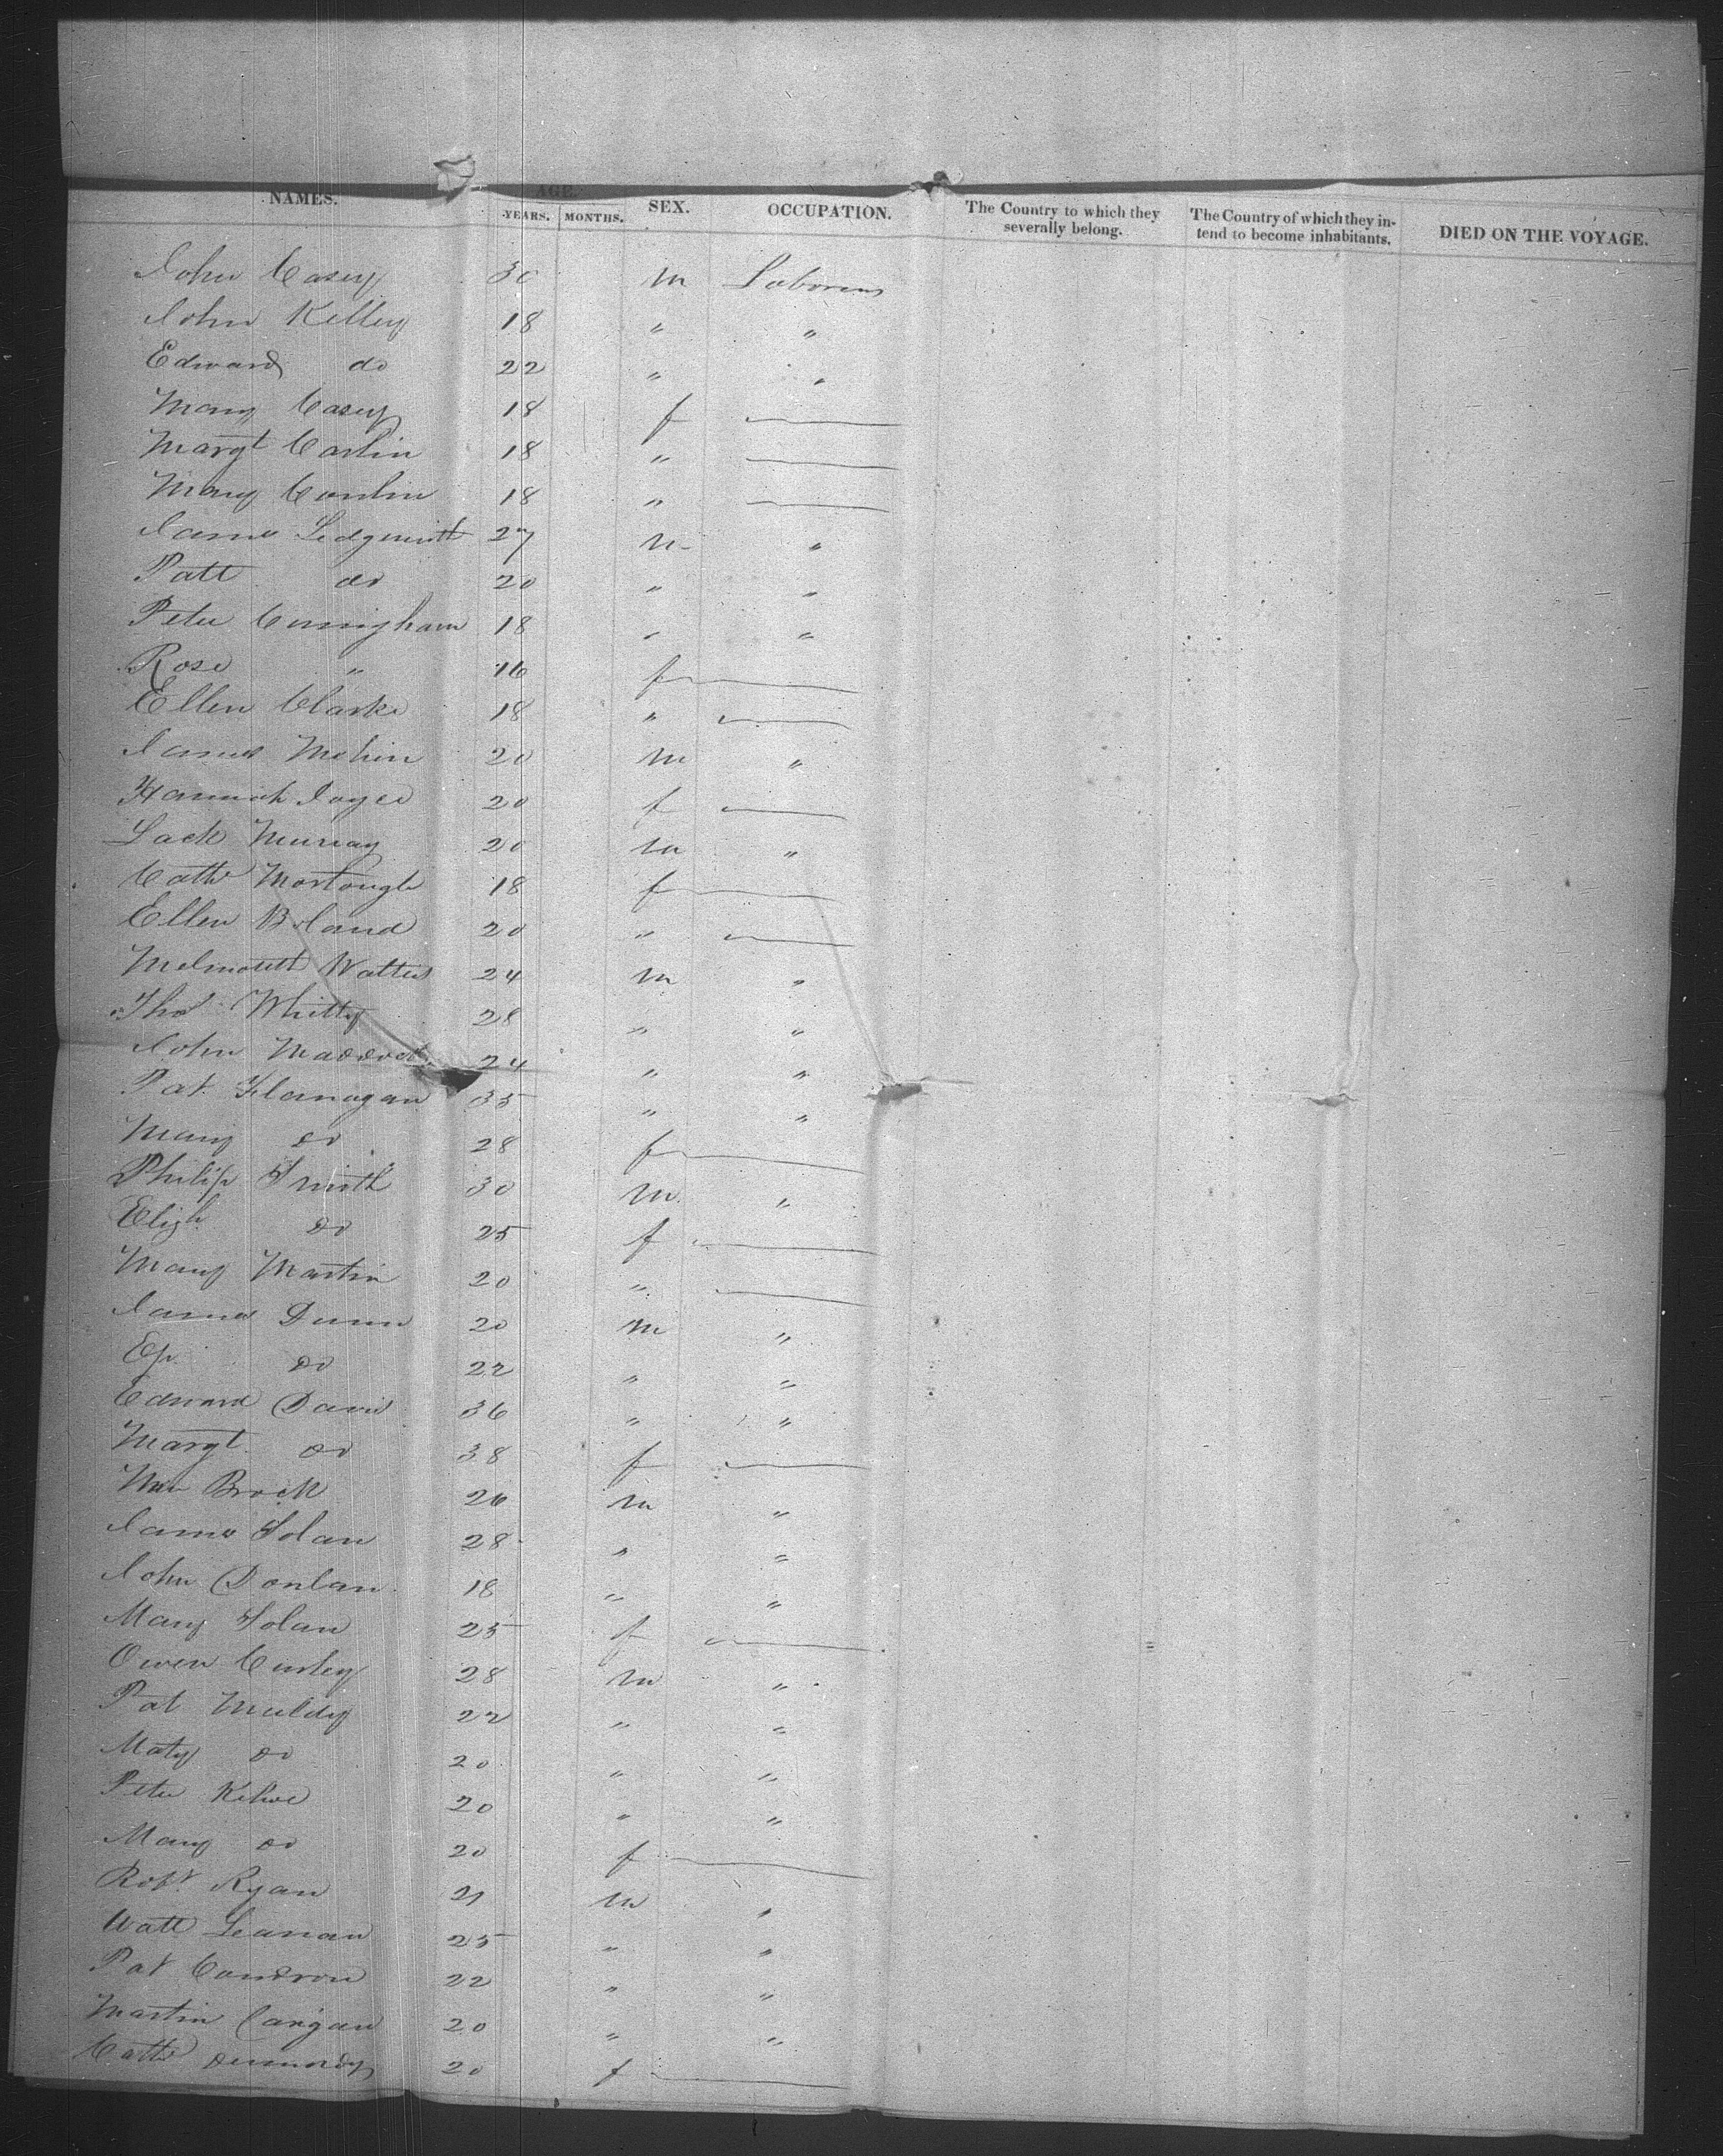 NAMES. AGE. YEARS. MONTHS. SEX. OCCUPATION. The Country to which they severally belong. The Country of which they intend to become inhabitants. DIED ON THE VOYAGE.
John Casey 30 m Laborers
John Kelley 18 " "
Edward do 22 " "
Mary Casey 18 f
Margt Carlin 18 "
Mary Conlin 18 "
James 27 m "
Patt do 20 " "
Peter Cunigham 18 " "
Rose " 16 f
Ellen Clarke 18 "
James 20 m "
Hannah Joyce 20 f
Jack Murray 20 m "
Cathe Mortough 18 f
Ellen Boland 20 "
Watters 24 m "
Thos Whitty 28 " "
John Maddock 24 " "
Pat Flanagan 35 " "
Mary do 28 f
Philip Smith 30 m "
Elizh do 25 f
Mary Martin 20 "
James Dunn 20 m "
do 22 " "
Edward David 36 " "
Margt do 38 f
Brock 26 m "
James Solan 28 " "
John Donlan 18 " "
Mary Solan 25 f
Owen Curley 28 m "
Pat Muldy 22 " "
Maty do 20 " "
Peter 20 " "
Mary do 20 f
Robt Ryan 21 m "
Watt 25 " "
Pat Condron 22 " "
Martin 20 " "
Cathe 20 f